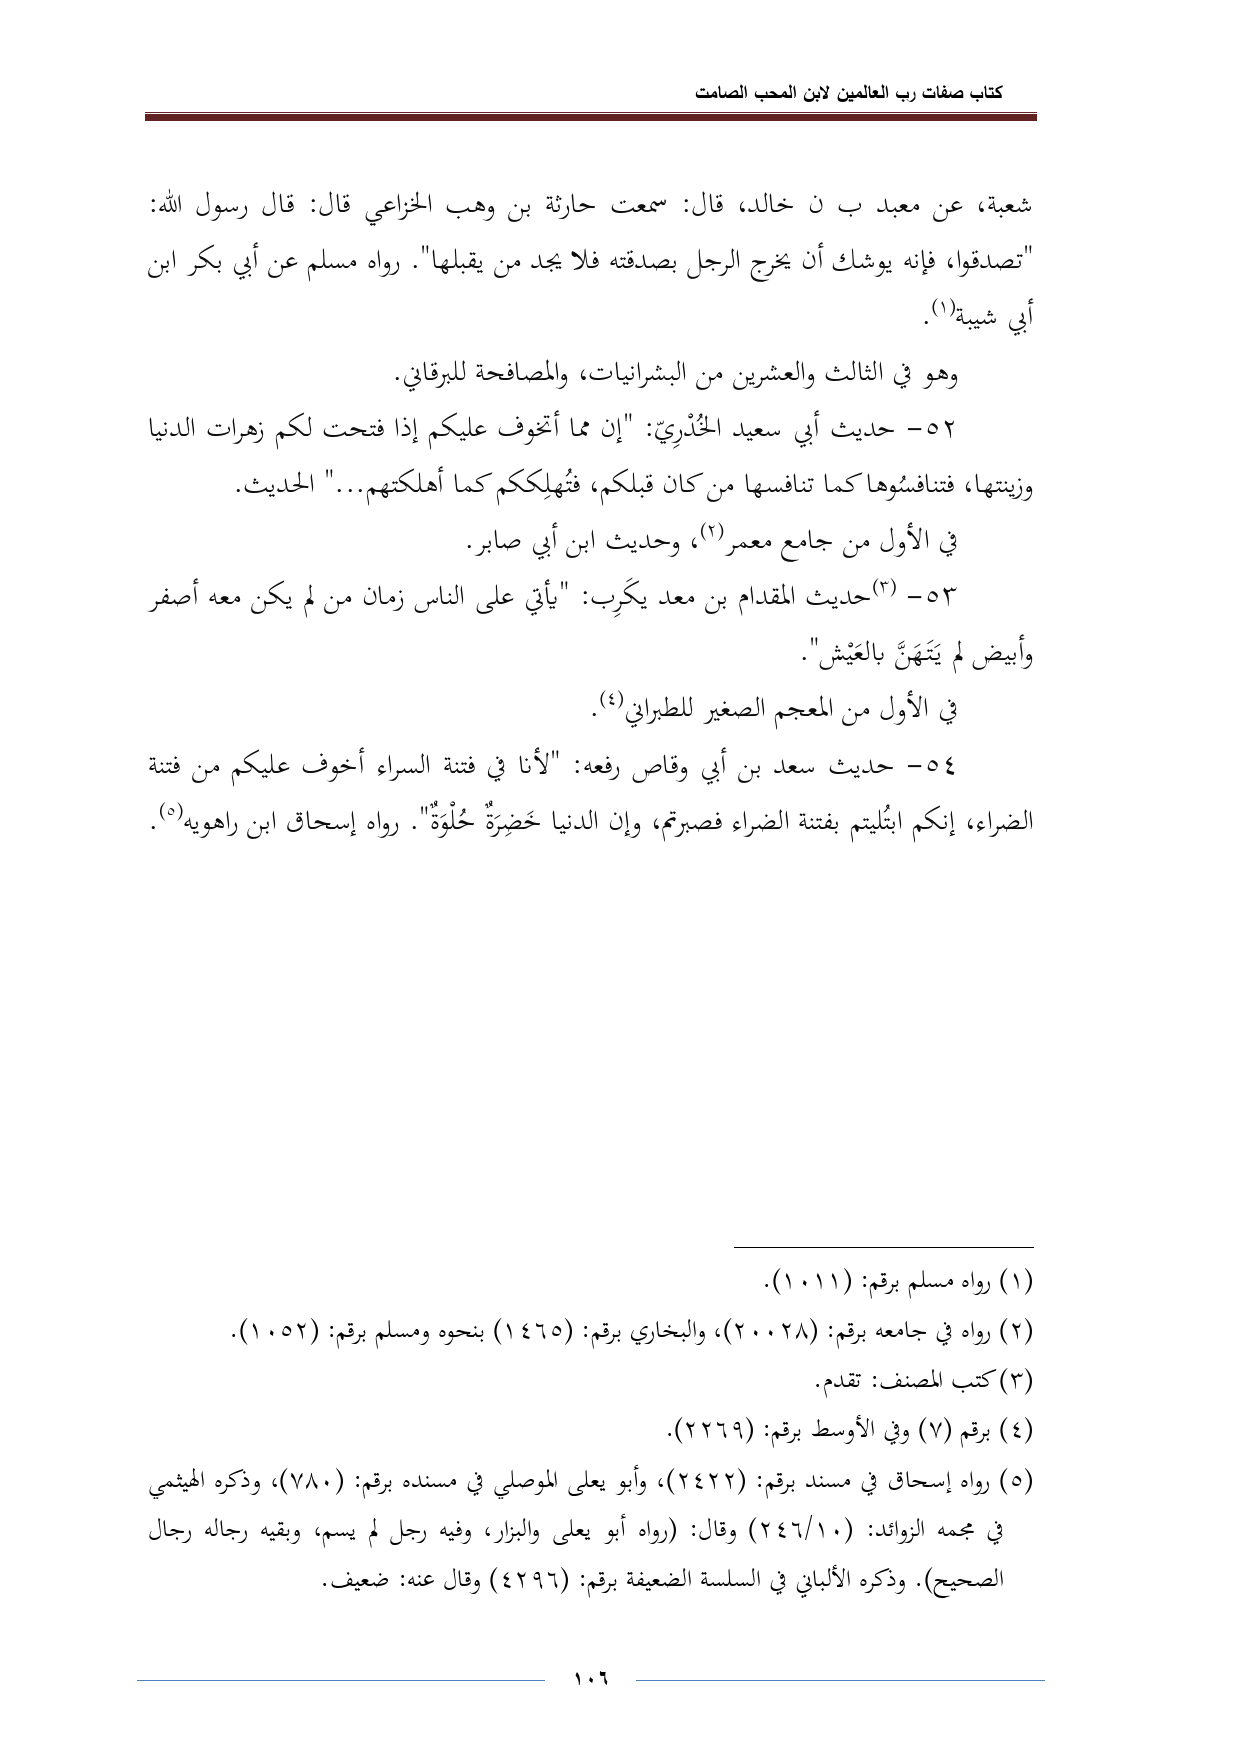 كتاب صفات رب العالمين لابن المحب الصامت
شعبة، عن معبد ب ن خالد، قال: سمعت حارثة بن وهب الخزاعي قال: قال رسول الله:
"تصدقوا، فإنه يوشك أن يخرج الرجل بصدقته فلا يجد من يقبلها". رواه مسلم عن أبي بكر ابن
أبي شيبة(١).
وهو في الثالث والعشرين من البشرانيات، والمصافحة للبرقاني.
٥٢- حديث أبي سعيد الخُدْرِيّ: "إن مما أتخوف عليكم إذا فتحت لكم زهرات الدنيا
وزينتها، فتنافسُوها كما تنافسها من كان قبلكم، فتُهلِككم كما أهلكتهم..." الحديث.
في الأول من جامع معمر(٢)، وحديث ابن أبي صابر.
٥٣- (٣)حديث المقدام بن معد يكَرِب: "يأتي على الناس زمان من لم يكن معه أصفر
وأبيض لم يَتَهَنَّ بالعَيْش".
في الأول من المعجم الصغير للطبراني(٤).
٥٤- حديث سعد بن أبي وقاص رفعه: "لأنا في فتنة السراء أخوف عليكم من فتنة
الضراء، إنكم ابتُليتم بفتنة الضراء فصبرتم، وإن الدنيا خَضِرَةٌ حُلْوَةٌ". رواه إسحاق ابن راهويه(٥).
(١) رواه مسلم برقم: (١٠١١).
(٢) رواه في جامعه برقم: (٢٠٠٢٨)، والبخاري برقم: (١٤٦٥) بنحوه ومسلم برقم: (١٠٥٢).
(٣) كتب المصنف: تقدم.
(٤) برقم (٧) وفي الأوسط برقم: (٢٢٦٩).
(٥) رواه إسحاق في مسند برقم: (٢٤٢٢)، وأبو يعلى الموصلي في مسنده برقم: (٧٨٠)، وذكره الهيثمي
في مجمه الزوائد: (٢٤٦/١٠) وقال: (رواه أبو يعلى والبزار، وفيه رجل لم يسم، وبقيه رجاله رجال
الصحيح). وذكره الألباني في السلسة الضعيفة برقم: (٤٢٩٦) وقال عنه: ضعيف.
١٠٦